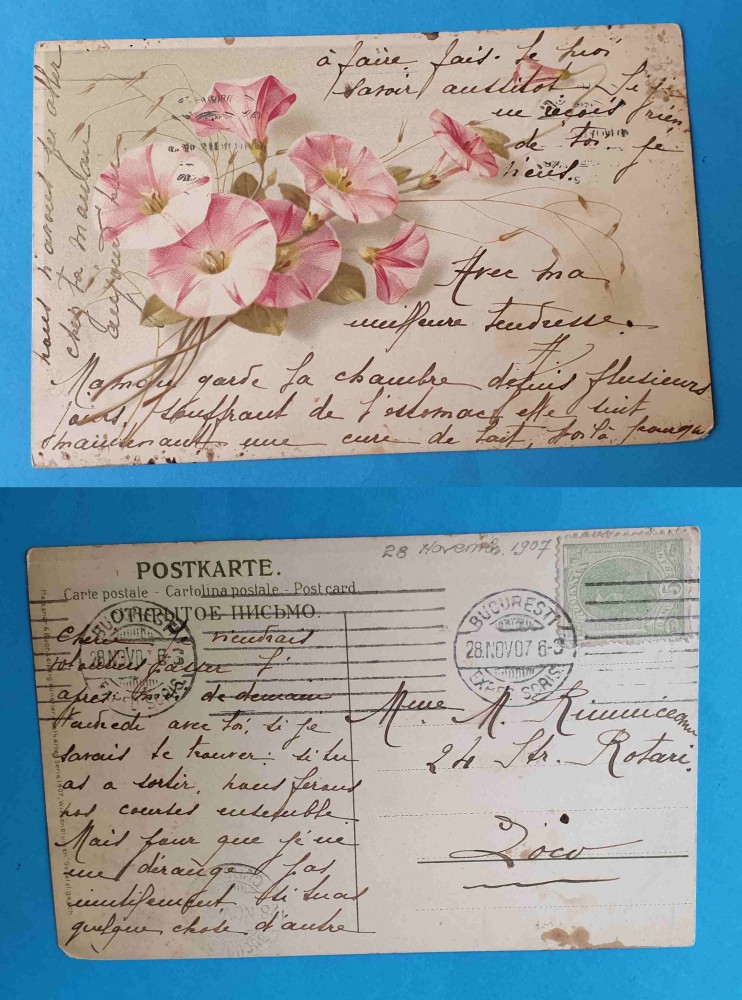 à faire fais-le moi
savoir aussitôt. Si je
ne reçois rien
de toi je
viens.
Avec ma
meilleure tendresse.
Maman garde la chambre depuis plusieurs
jours, souffrant de l'estomac, elle suit
maintenant une cure de lait, voilà pourquoi
nous n'avons pu aller
chez ta maman
aujourd'hui
28 Novemb. 1907
POSTKARTE.
Carte postale - Cartolina postale - Post card.
ОТКРЫТОЕ ПИСЬМО.
BUCURESTI
28.NOV.07
BUCURESTI
28.NOV07 6-
5
Chérie viendrais
volontiers passer l'
après midi de demain
vendredi avec toi, si je
savais te trouver: si tu
as a sortir, nous ferons
nos courses ensemble.
Mais pour que je ne
me dérange pas
inutilement si tu as
quelque chose d'autre
Mme M. Rimniceanu
24 Str. Rotari.
Loco